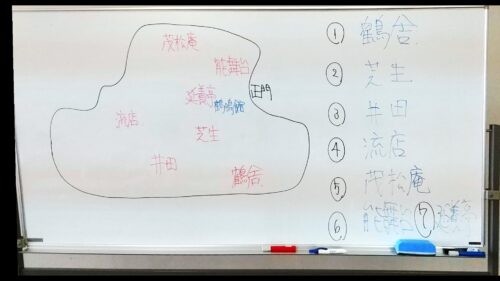 茂松庵
能舞台
正門
延養亭
鶴鳴館
流店
芝生
井田
鶴舎
① 鶴舎
② 芝生
③ 井田
④ 流店
⑤ 茂松庵
⑥ 能舞台 ⑦ 延養亭